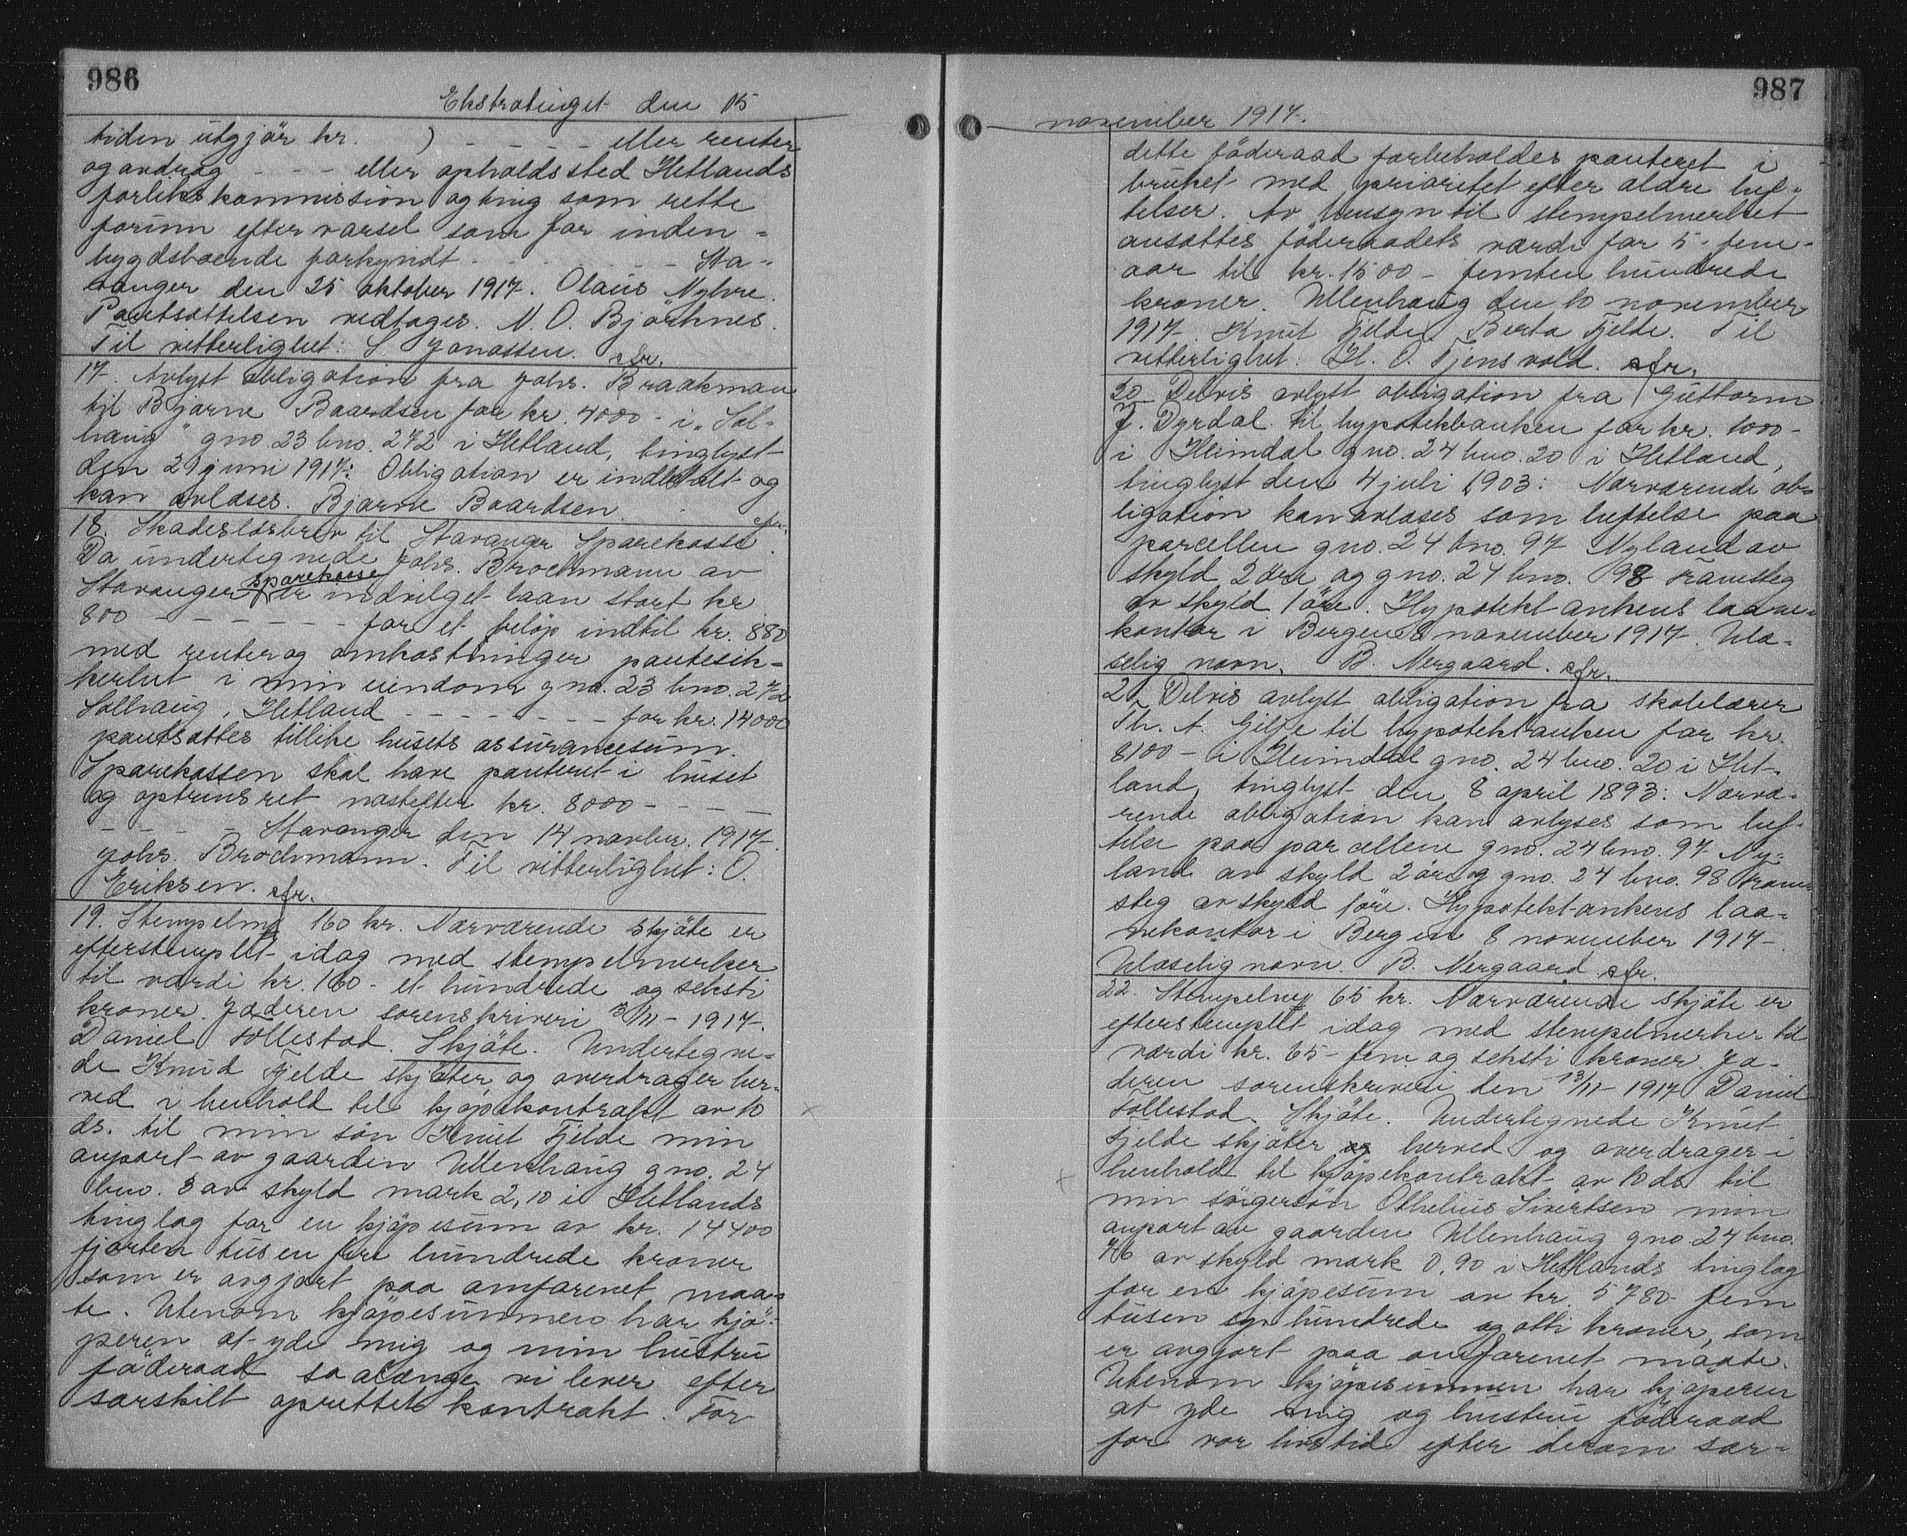 986
Ekstratinget den 15
tiden utgjör kr. ) - - - - eller renter
og avdrag - - - eller opholdssted Hetlands
forlikskommission og ting som rette
forum efter varsel som for inden-
bygdsboende forkyndt - - - - - - - Sta-
vanger den 25 oktober 1917. Olaus Nylvre.
Pantsættelsen vedtages. N. O. Björknes.
Til vitterlighet: S Jonassen. sfr.
17. Avlyst obligation fra Johs. Braakman
til Bjarne Baardsen for kr. 4000 - i "Sol-
haug" gno. 23 bno. 272 i Hetland, tinglyst
den 29 juni 1917: Obligation er indbetalt og
kan avlæses. Bjarne Baardsen. sfr.
18. Skadeslösbrev til Stavanger Sparekasse.
Da undertegnede Johs. Brochmann av
Stavanger sparekasse er indvilget laan stort kr
800 - - - - - - - for et beløp indtil kr. 880
med renter og omkostninger pantesik-
kerhet i min eiendom gno. 23 bno. 272
Solhaug, Hetland - - - - - - - for kr. 14000
pantsættes tillike husets assurancesum.
Sparekassen skal have panteret i huset
og optrinsret næstefter kr. 8000 - - - -
- - - - - Stavanger den 14 novbr. 1917.
Johs. Brochmann. Til vitterlighet: O.
Eriksen. sfr.
19. Stempelmr 160 kr. Nærværende skjöte er
efterstemplet idag med stempelmerker
til værdi kr. 160 - et hundrede og seksti
kroner. Jæderen sorenskriveri 13/11 - 1917.
Daniel Tollestad. Skjöte. Undertegne-
de Knud Fjelde skjöter og overdrager her-
ved i henhold til kjöpekontrakt av 10
ds. til min sön Knut Fjelde min
anpart av gaarden Ullenhaug gno. 24
bno. 8 av skyld mark 2,10 i Hetlands
tinglag for en kjöpesum av kr. 14400
fjorten tusen fire hundrede kroner
som er avgjort paa omforenet maa-
te. Utenom kjöpesummen har kjö-
peren at yde mig og min hustru
föderaad saalænge vi lever efter
særskilt oprettet kontrakt. For
987
november 1917.
dette föderaad forbeholdes panteret i
bruket med prioritet efter ældre hef-
telser. Av hensyn til stempelmerket
ansættes föderaadets værdi for 5 - fem -
aar til kr. 1500 - femten hundrede
kroner. Ullenhaug den 10 november
1917. Knut Fjelde. Berta Fjelde. Til
vitterlighet: H. O. Tjensvold. sfr.
20 Delvis avlyst obligation fra Guttorm
J. Dyrdal til hypotekbanken for kr. 1000 -
i Heimdal gno. 24 bno. 20 i Hetland,
tinglyst den 4 juli 1903: Nærværende ob-
ligation kan avlæses som heftelse paa
parcellen gno. 24 bno. 97 Nyland av
skyld 2 öre og gno. 24 bno. 98 Framsteg
av skyld 1 öre. Hypotekbankens laane-
kontor i Bergen 8 november 1917. Ulæ-
selig navn. B. Nergaard. sfr.
21. Delvis avlyst obligation fra skolelærer
Th. A. Gilje til hypotekbanken for kr.
8100 - i Heimdal gno. 24 bno. 20 i Het-
land, tinglyst den 8 april 1893: Nærvæ-
rende obligation kan avlyses som hef-
telse paa parcellene gno. 24 bno. 97 Ny-
land av skyld 2 öre og gno. 24 bno. 98 Fram-
steg av skyld 1 öre. Hypotekbankens laa-
nekontor i Bergen 8 november 1917.
Ulæselig navn. B. Nergaard sfr.
22. Stempelmr 65 kr. Nærværende skjöte er
efterstemplet idag med stempelmerker til
værdi kr. 65 - fem og seksti kroner Jæ-
deren sorenskriveri den 13/11 - 1917 Daniel
Tollestad. Skjöte. Undertegnede Knut
Fjelde skjöter og herved og overdrager i
henhold til kjöpekontrakt av 10 ds. til
min svigersön Othelius Sivertsen min
anpart av gaarden Ullenhaug gno 24 bno.
46 av skyld mark 0,90 i Hetlands tinglag
for en kjöpesum av kr. 5780 - fem
tusen syv hundrede og otti kroner, som
er avgjort paa omforenet maate.
Utenom kjöpesummen har kjöperen
at yde mig og hustru föderaad
for vor livstid efter derom sær-